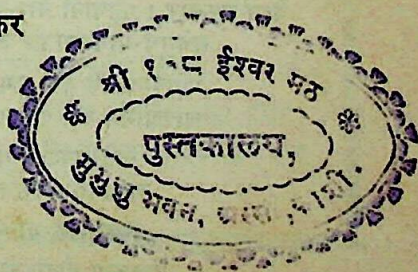 कर
श्री १०८ ईश्वर मठ
पुस्तकालय,
मुमुक्षु भवन, अस्सी, काशी.